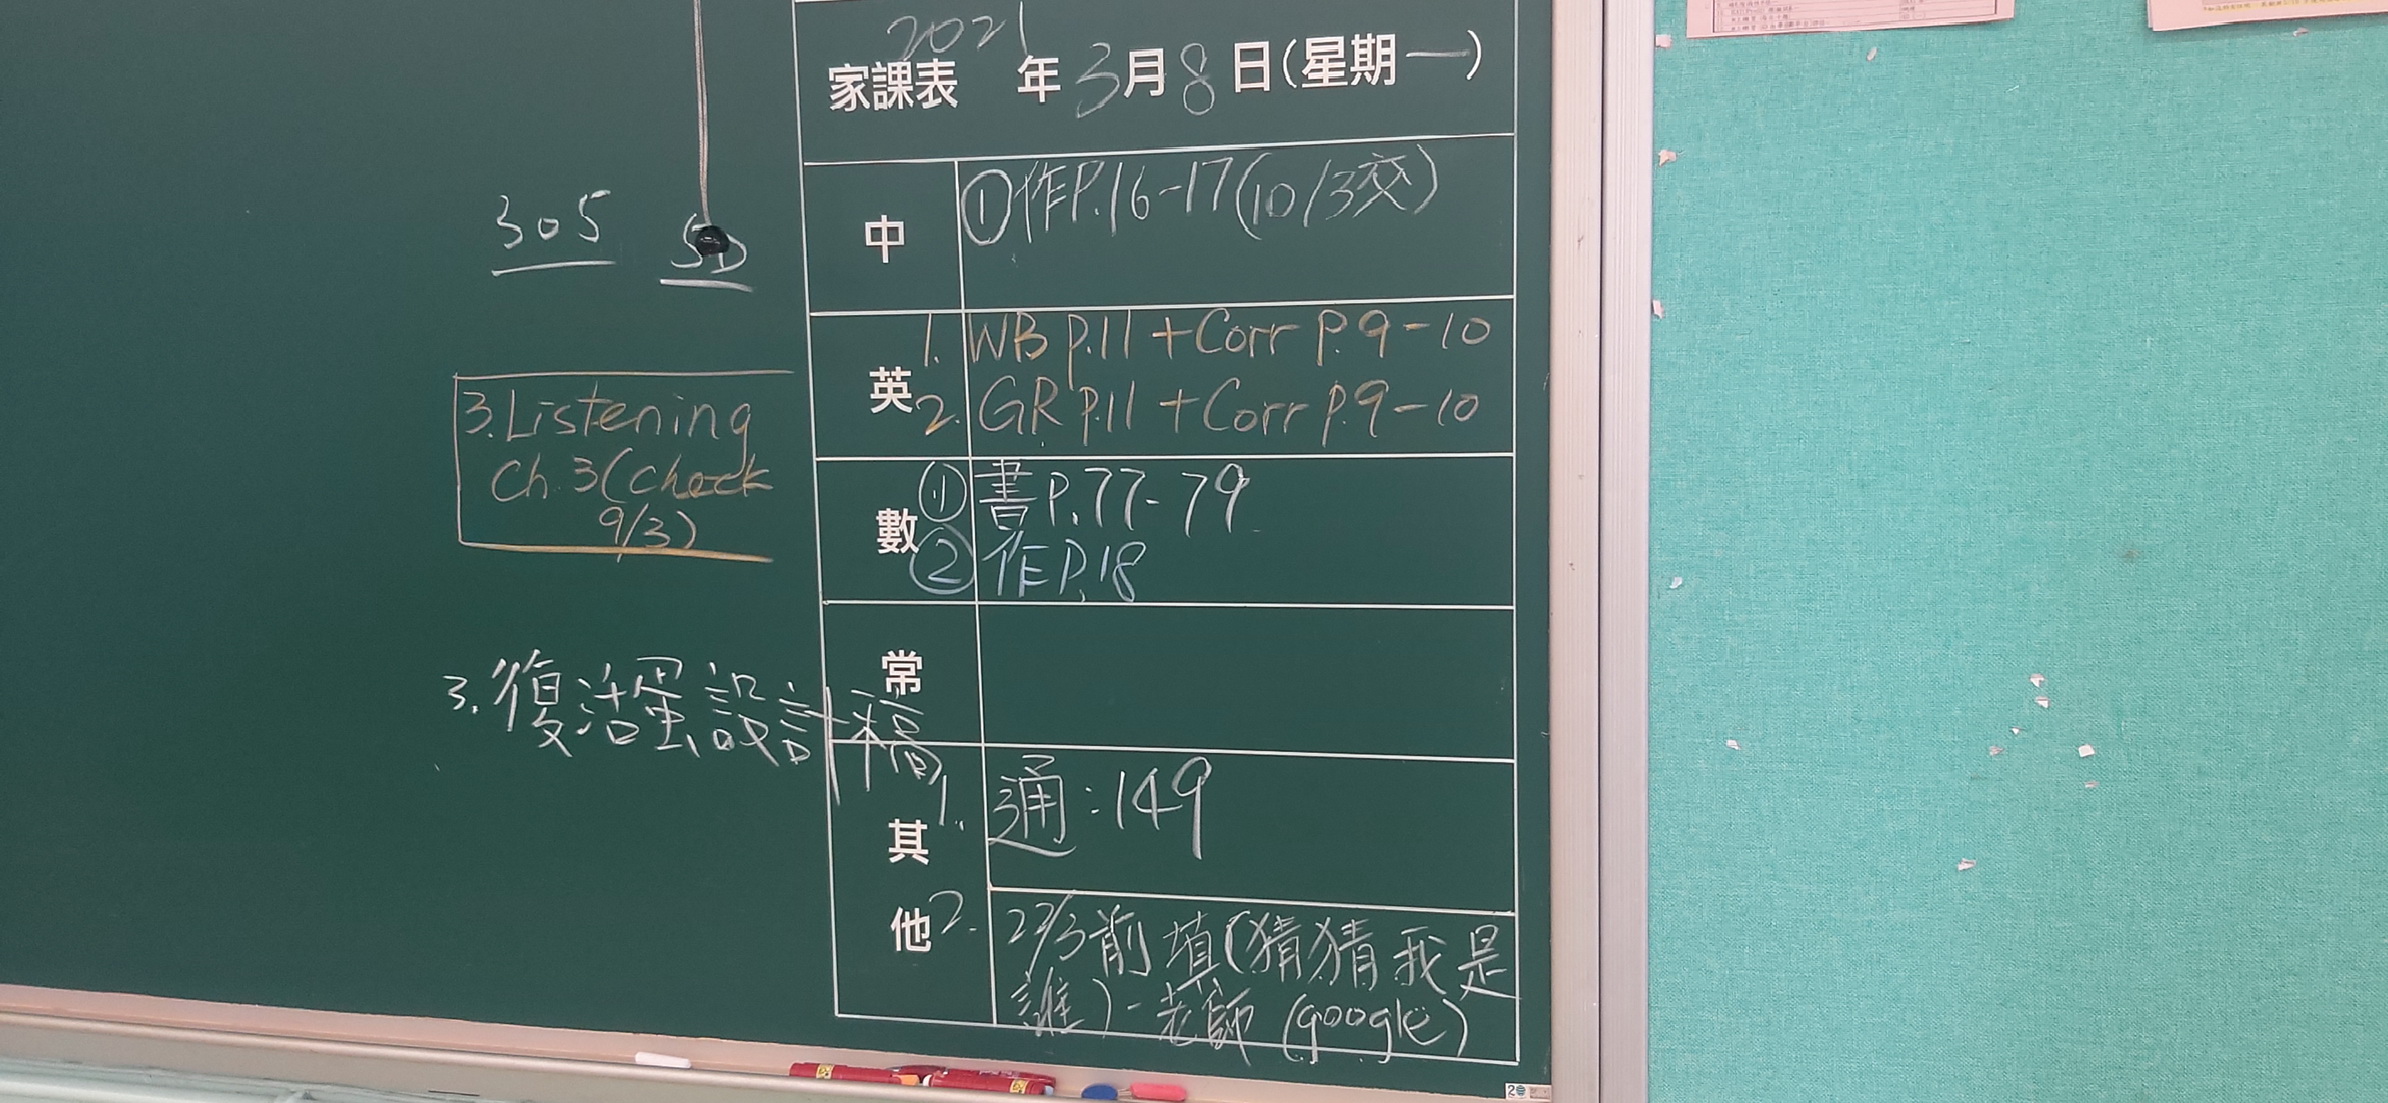 家課表 2021年3月8日(星期一)
305
5D
中
①作P.16-17(10/3交)
英
1. WB P.11 + Corr P.9-10
2. GR P.11 + Corr P.9-10
3. Listening
Ch.3 (check
9/3)
數
① 書P.77-79
② 作P.18
常
其他
1. 通:149
2. 22/3前填(猜猜我是
誰)-老師(google)
3. 復活蛋設計稿